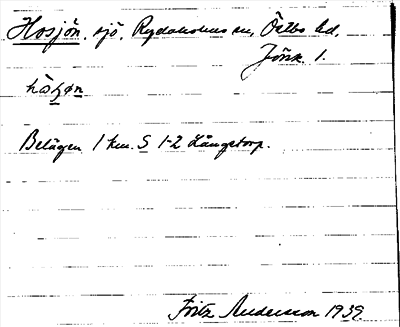 Hosjön. sjö. Rydaholms sn, Östbo hd,
Jönk. l.
hòʃøn
Belägen 1 km. S 1-2 Långstorp.
Fritz Andersson 1939